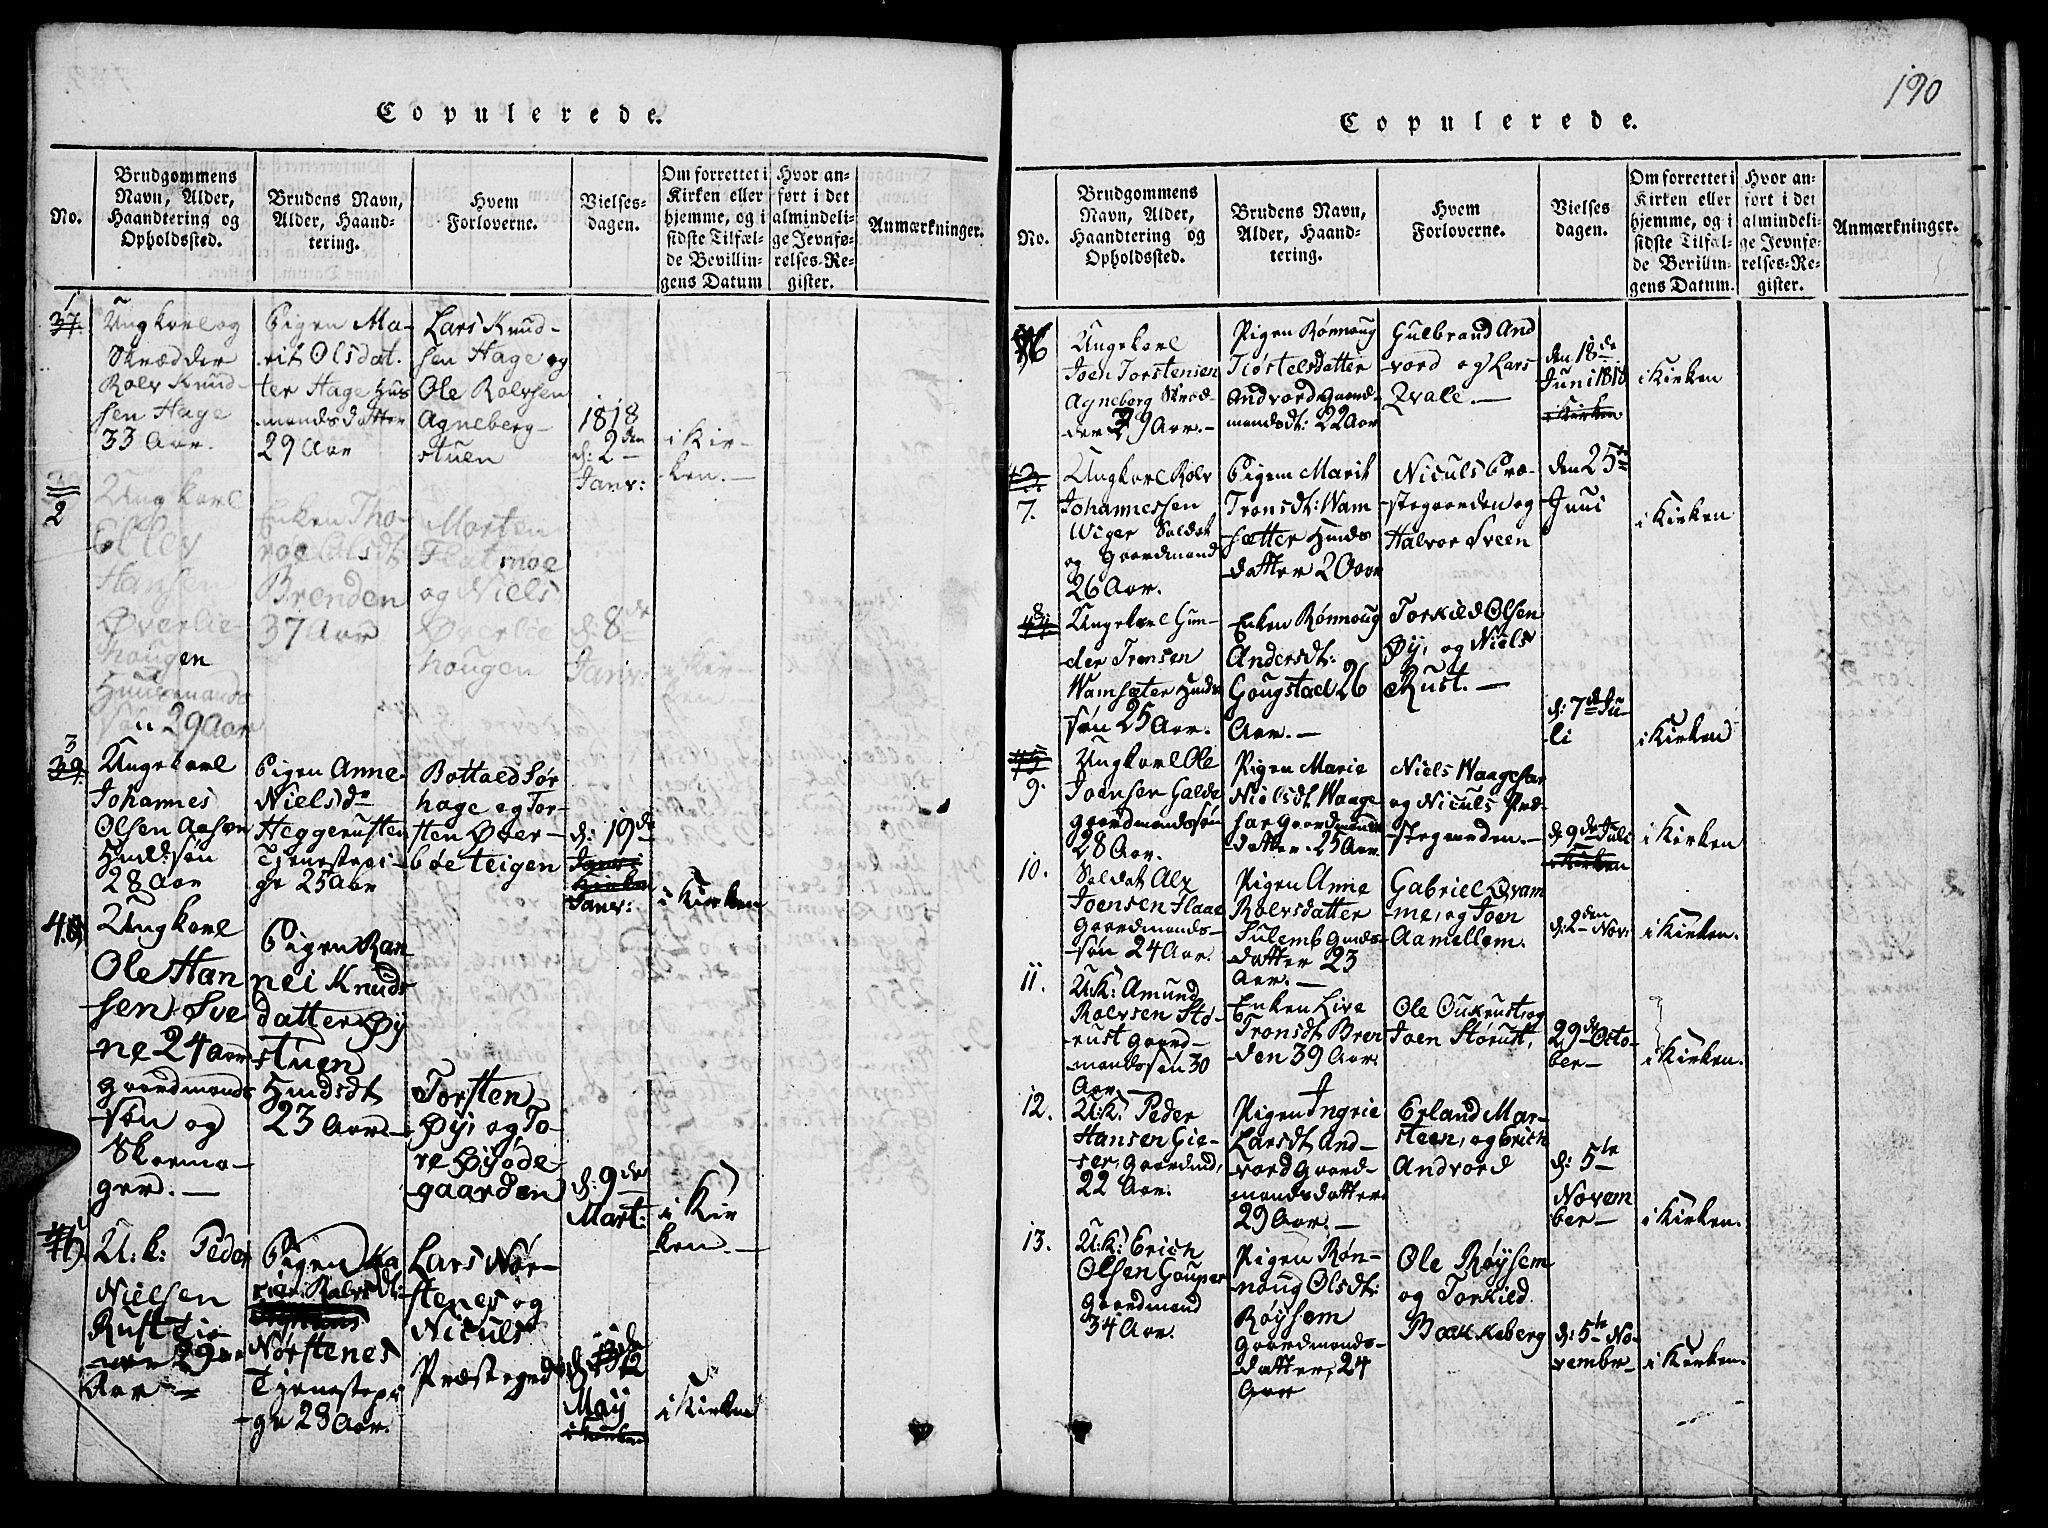 Copulerede.
No.
Brudgommens
Navn, Alder,
Haandtering og
Opholdssted.
Brudens Navn,
Alder, Haand-
tering.
Hvem
Forloverne.
Vielses-
dagen.
Om forrettet i
Kirken eller
hjemme, og i
sidste Tilfæl-
de Bevillin-
gens Datum
Hvor an-
ført i det
almindeli-
ge Jevnfø-
relses-Re-
gister.
Anmærkninger.
1
37.
Ungkarl og
Skrædder
Rolv Knud-
sen Hage
33 Aar.
Pigen Ma-
rit Olsdat-
ter Hage Hus
mandsdatter
29 Aar
Lars Knud-
sen Hage og
Ole Rolvsen
Agneberg-
stuen
1818
d: 2den
Janv:
i Kir-
ken.
2
Ungkarl
Hansen
Øverlie-
hougen
Huusmands
søn 29 Aar
Enken Tho-
roe Olsdt
Brenden
37 Aar
Morten
Flatmoe
og Niels
Øverlie
hougen
d: 8de
Janv:
i Kir-
ken
3
39.
Ungekarl
Johannes
Olsen Aasen
Hmdssøn
28 Aar
Pigen Anne
Nielsdr
Heggerusten
Tjenestepi-
ge 25 Aar
Bottold Sør
hage og Tor-
sten Øver-
bøe teigen
d: 19de
Janv:
i Kirken
4.
Ungkarl
Ole Han
sen Sve
ne 24 Aar
gaardmands
søn og
Skoma-
ger.
Pigen Ran
nei Knuds
datter Øy
stuen
Hmdsdt
23 Aar.
Torsten
Øy, og To-
re Øyøde
gaarden
d: 9de
Mart:
i Kir
ken.
U: k: Peder
Nielsen
Rust
29
Aar
Pigen Ka
ri Rolvsdt:
Nørstenes
Tjenestepi
ge 28 Aar.
Lars Nør-
stenes og
Niculs
Præstegrd
May
i Kirken
190
Copulerede.
No.
Brudgommens
Navn, Alder,
Haandtering og
Opholdssted.
Brudens Navn,
Alder, Haand-
tering.
Hvem
Forloverne.
Vielses
dagen.
Om forrettet i
Kirken eller
hjemme, og i
sidste Tilfæl-
de Bevillin-
gens Datum.
Hvor an-
ført i det
almindeli-
ge Jevnfø-
relses-Re-
gister.
Anmærkninger.
6
Ungekarl
Joen Torstensen
Agneberg Skræd-
der 29 Aar.
Pigen Rønnoug
Tiøstelsdatter
Andvord Gaard-
mandsdt: 22 Aar
Gulbrand And
vord og Lars
Qvale.
den 18de
Juni 1818
i Kirken
i Kirken
43.
7.
Ungkarl Rolv
Johannessen
Wiger Soldat
og gaardmand
26 Aar.
Pigen Marit
Tronsdt: Wam
sætter Hmds
datter 20 Aar
Niculs Præ-
stegaarden og
Halvor Sveen
den 25de
Juni
i Kirken
8
44
Ungekarl Gun-
der Tronsen
Wamsæter Hmds
søn 25 Aar.
Enken Rønnoug
Andersdt:
Gougstad 26
Aar.
Torkild Olsen
Øy, og Niels
Rust.
d: 7de Ju-
li
i Kirken
45
9.
Ungkarl Ole
Joensen Galde
gaardmandssøn
28 Aar.
Pigen Marie
Nielsdt Waage
sar Gaardmands
datter 25 Aar.
Niels Waagesar
og Niculs Præ-
stegaarden.
d: 9de Juli
i Kirken
i Kirken
10.
Soldat Alv
Joensen Flaae
Gaardmands-
søn 24 Aar.
Pigen Anne
Rolvsdatter
Sulemb Gmds-
datter 23
Aar.
Gabriel Qvam
me, og Joen
Aamellem.
d: 2den Nov:
i Kirken.
11.
U:K: Amund
Rolvsen Stø-
rust Gaard-
mandssøn 30
Aar.
Enken Live
Tronsdt Bren
den 39 Aar.
Ole Oukrust, og
Joen Størust,
29de Octo-
ber
i Kirken.
12.
U:K: Peder
Hansen Gie-
ser, Gaardmd,
22 Aar.
Pigen Ingrie
Larsdt And-
vord Gaard-
mandsdatter
29 Aar.
Erland Mar-
steen, og Erich
Andvord
d: 5te
Novem
ber
i Kirken.
13.
U:K: Erich
Olsen Gouper
Gaardmand
34 Aar.
Pigen Røn-
noug Olsdt:
Røysem
Gaardmands-
datter, 24
Aar
Ole Røysem
og Torkild
Bakkeberg
d: 5te No-
vembr
i Kirken.